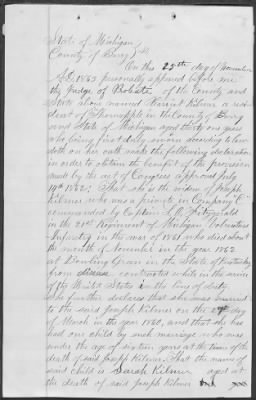 State of Michigan
County of Barry } ss
On this 28th day of November
A.D. 1863 personally appeared before me
the Judge of Probate of the County and
State above named Harriet Kilmer a resi
dent of Thornapple in the County of Barry
and State of Michigan aged thirty one years
who being first duly sworn according to law
doth on her oath make the following declaration
in order to obtain the benefit of the provision
made by the act of Congress approved July
14th 1862: That she is the widow of Joseph
Kilmer who was a private in Company C
commanded by Captain S. O. Fitzgerald
in the 21st Regiment of Michigan Volunteers
Infantry in the war of 1861 who died about
the month of November in the year 1862
at Bowling Green in the State of Kentucky
from disease contracted while in the service
of the United States in the line of duty.
She further declares that she was married
to the said Joseph Kilmer on the day
of March in the year 1860, and that she has
had one child by such marriage who was
under the age of sixteen years at the time of the
death of said Joseph Kilmer. That the name of
said child is Sarah Kilmer aged at
the death of said Joseph Kilmer